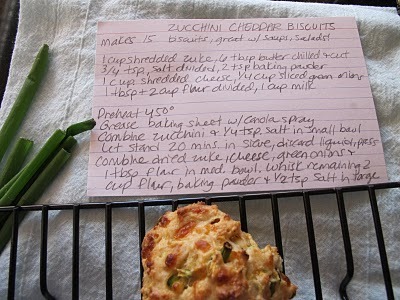 ZUCCHINI CHEDDAR BISCUITS
makes 15 biscuits, great w/ soups, salads!
1 cup shredded zuke, 6 tbsp butter chilled & cut
3/4 tsp. salt divided, 2 tsp baking powder
1 cup shredded cheese, 1/4 cup sliced green onions
1 tbsp + 2 cup flour divided, 1 cup milk
Preheat 450°
Grease baking sheet w/ canola spray
Combine zucchini & 1/4 tsp. salt in small bowl
Let stand 20 mins. in sieve, discard liquid, press
Combine dried zuke, cheese, green onions &
1 tbsp flour in med. bowl. Whisk remaining 2
cup flour, baking powder & 1/2 tsp salt in large